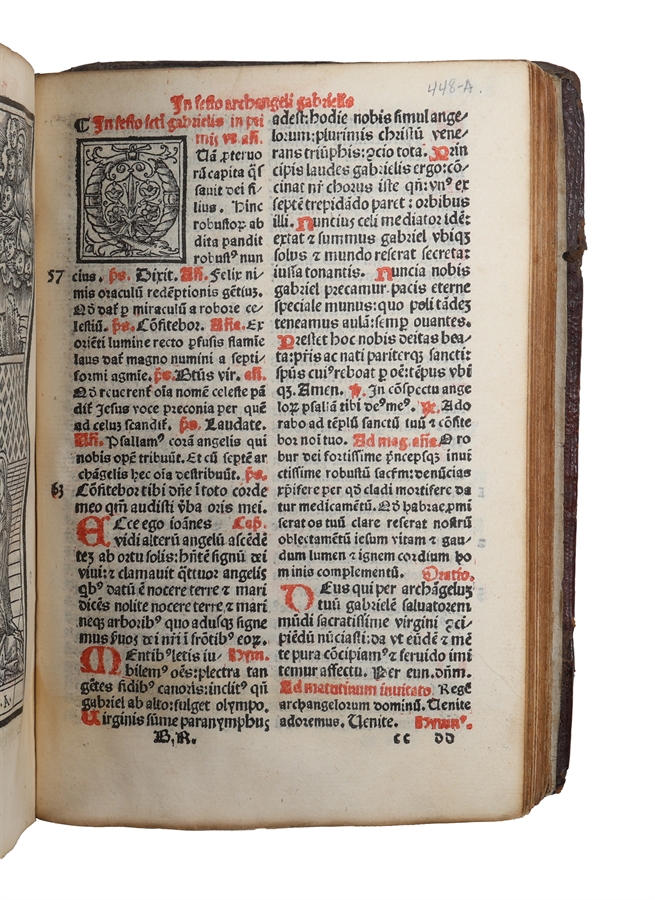 448-A.
In festo archangeli gabrielis
¶ In festo scti gabrielis in pri
mis vs añ.
Uã ꝓteruo
rũ capita q̃s
sauit dei fi-
lius. Hinc
robustoꝝ ab
dita pandit
robustꝰ nun
57 cius. p̃s. Dixit. Añ. Felix ni-
mis oraculũ redẽptionis gẽtiuʒ.
Nõ dat̃ ꝑ miraculũ a robore ce-
lestiũ. p̃s. Cõfitebor. Añe. Ex
oriẽti lumine recto ꝑfusis flamie
laus dat̃ magno numini a septi-
formi agmie. p̃s. Btũs vir. añ.
Nõ reuerent̃ oĩa nomẽ celeste pã
dit̃ Jesus voce preconia per quẽ
ad celuʒ scandit̃. p̃s. Laudate.
Añ. Psallamꝰ corã angelis qui
nobis opẽ tribuũt. Et cũ septẽ ar
chãgelis hec oĩa destribuũt. p̃s.
63 Cõfitebor tibi dñe ĩ toto corde
meo qm̃ audisti ṽba oris mei.
Ecce ego ioãnes Cap̃.
vidi alterũ angelũ ascẽdẽ
teʒ ab ortu solis: hñtẽ signũ dei
viui: ⁊ clamauit q̃ttuor angelis
qbꝰ datũ ẽ nocere terre ⁊ mari
dicẽs nolite nocere terre ⁊ mari
neqʒ arboribꝰ quo adusqʒ signe
mus ẜuos dei nr̃i ĩ frõtibꝰ eoꝝ.
Mentibꝰ letis iu- Hym.
bilemꝰ oẽs: plectra tan
gẽtes fidibꝰ canoris: inclitꝰ qñ
gabriel ab alto: fulget olympo.
Uirginis sume paranymphus
B. R.
adest: hodie nobis simul ange-
lorum: plurimis christũ vene-
rans triũphis: ꝯcio tota. Prin
cipis laudes gabrielis ergo: cõ-
cinat nr̃ chorus iste qñ: vnꝰ ex
septẽ trepidãdo paret: orbibus
illi. Nuncius celi mediator idẽ:
extat ⁊ summus gabriel vbiqʒ
solus ⁊ mundo reserat secreta:
iussa tonantis. Nuncia nobis
gabriel precamur pacis eterne
speciale munus: quo poli tãdeʒ
teneamus aulã: semꝑ ouantes.
Prestet hoc nobis deitas bea-
ta: pr̃is ac nati pariterqʒ sancti:
sp̃us cuiꝰ reboat ꝑ oẽ: tẽpus vbi
qʒ. Amen. ℣. In cõspectu ange
loꝝ psallã tibi deꝰmeꝰ. ℟. Ado
rabo ad tẽplũ sanctũ tuũ ⁊ cõfite
bor noi tuo. Ad mag. añe. O ro
bur dei fortissime p̃ncepsqʒ inui
ctissime robustũ sacr̃m: denũcias
xp̃ifere per qõ cladi mortifere da
tur medicamẽtũ. Nõ habrae,ꝓmi
serat os tuũ clare reserat nostrũ
oblectamẽtũ iesum vitam ⁊ gau-
dum lumen ⁊ ignem cordium ho
minis complementũ. Oratio.
Deus qui per archãgeluʒ
tuũ gabrielẽ saluatorem
mũdi sacratissime virgini ꝯci-
piẽdũ nũciasti: da vt eũdẽ ⁊ mẽ
te pura cõcipiamꝰ ⁊ feruido imi
temur affectu. Per eun. dñm.
Ad matutinum inuitato. Regẽ
archangelorum dominũ. Uenite
adoremus. Uenite. Hymnꝰ.
cc dd